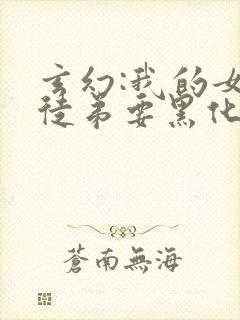 玄幻:我的女
徒弟要黑化
蒼南無海